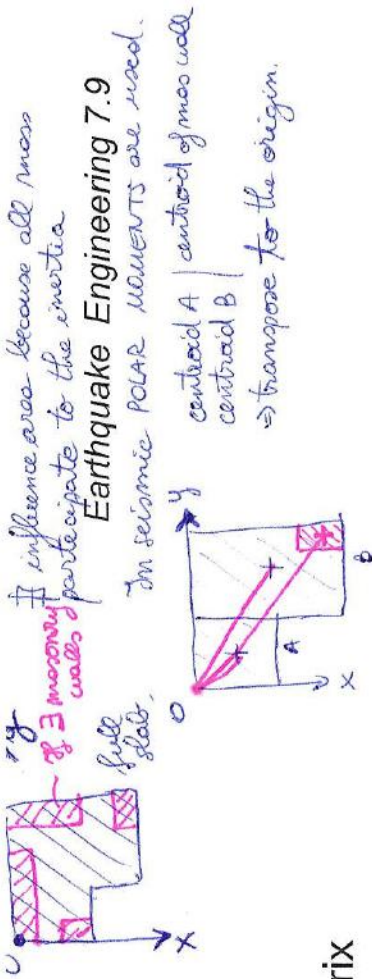 O
y
if ∃ masonry
walls
full
slab.
X
∄ influence area because all mass
participate to the inertia
Earthquake Engineering 7.9
In seismic POLAR MOMENTS are used.
O
y
A
B
X
centroid A | centroid of mas wall
centroid B |
⇒ transpose to the origin.
rix